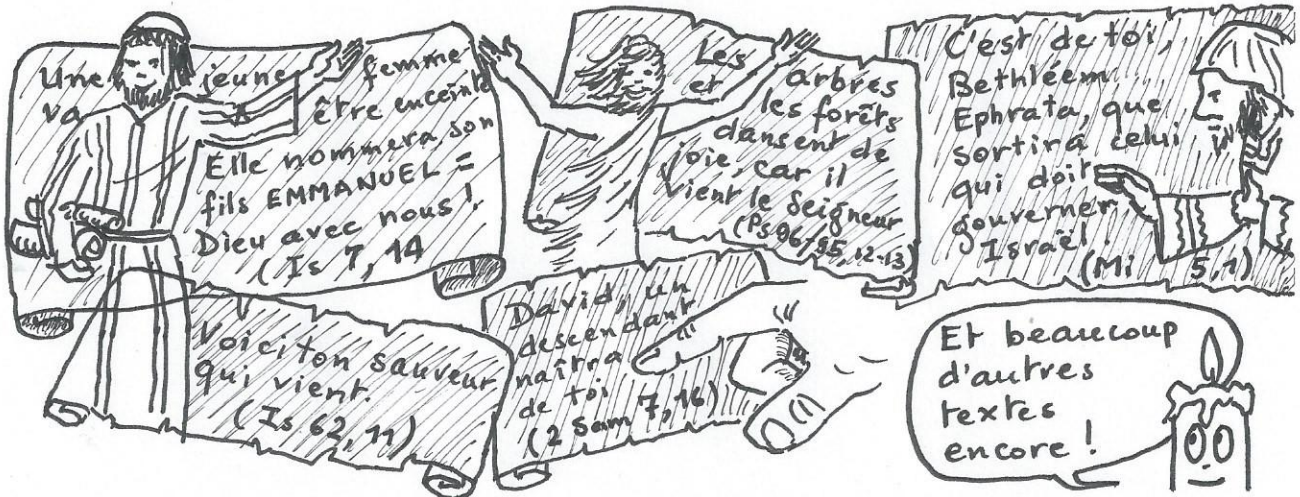 Une jeune femme
va être enceinte
Elle nommera son
fils EMMANUEL =
Dieu avec nous !
(Is 7, 14
Les arbres
et les forêts
dansent de
joie, car il
vient le Seigneur
(Ps 96/95, 12-13)
C'est de toi,
Bethléem
Ephrata, que
sortira celui
qui doit
gouverner
Israël !
(Mi 5,1)
Voici ton sauveur
qui vient.
(Is 62, 11)
David, un
descendant
naîtra
de toi
(2 Sam 7, 16)
Et beaucoup
d'autres
textes
encore !